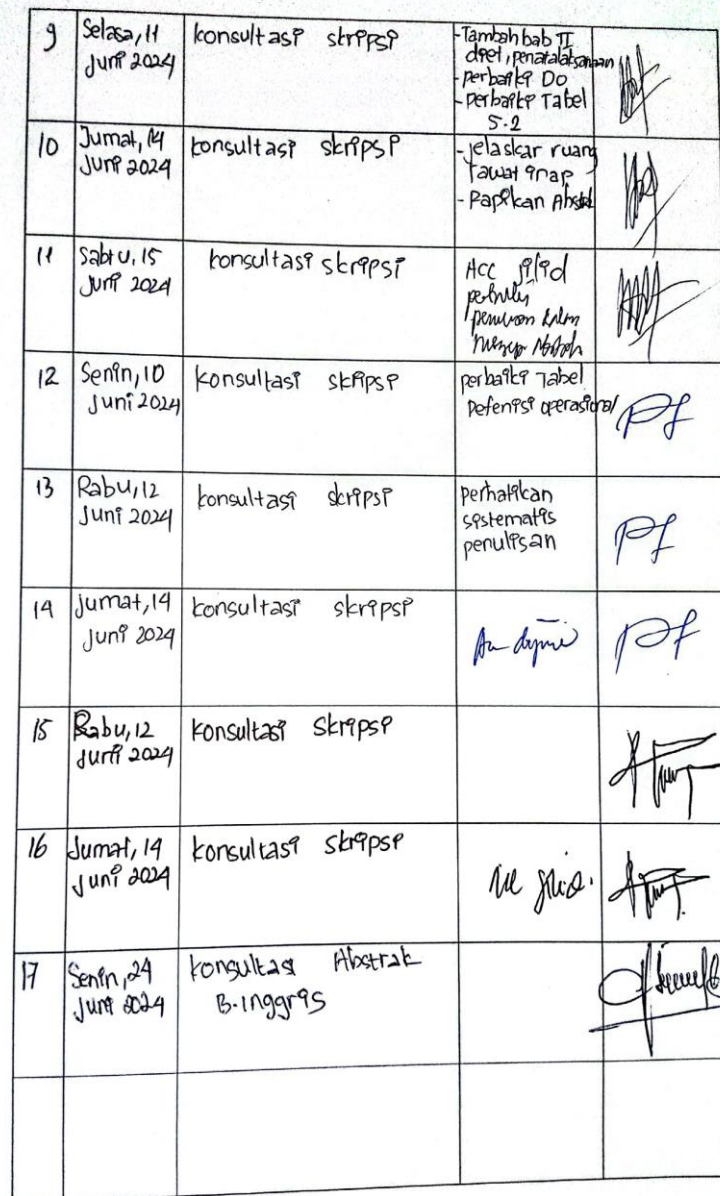 9 Selasa, 11 Juni 2024 konsultasi skripsi
- Tambah bab II
diet, penatalaksanaan
- perbaiki DO
- perbaiki Tabel
5.2
10 Jumat, 14 Juni 2024 konsultasi skripsi
- jelaskan ruang
rawat inap
- Rapikan
11 Sabtu, 15 Juni 2024 konsultasi skripsi
ACC jilid
12 Senin, 10 Juni 2024 konsultasi skripsi
perbaiki Tabel
Defenisi operasional
13 Rabu, 12 Juni 2024 konsultasi skripsi
perhatikan
sistematis
penulisan
14 Jumat, 14 Juni 2024 konsultasi skripsi
15 Rabu, 12 Juni 2024 konsultasi skripsi
16 Jumat, 14 Juni 2024 konsultasi skripsi
17 Senin, 24 Juni 2024 konsultasi Abstrak
B. inggris